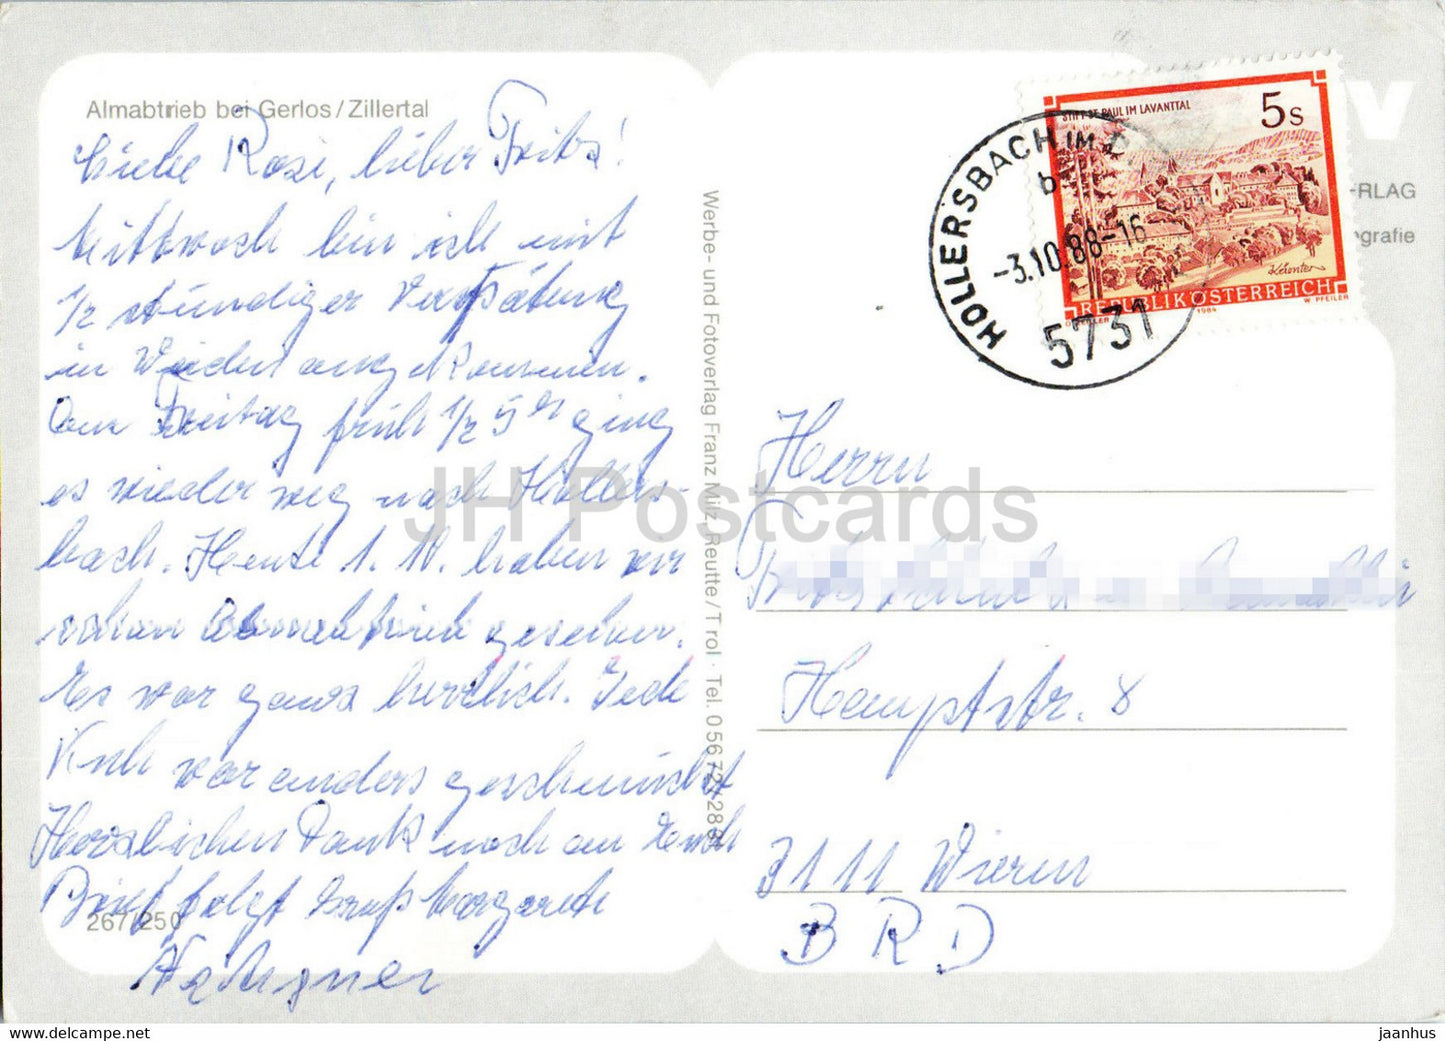 Almabtrieb bei Gerlos/Zillertal
Liebe Rosi, lieber Fritz!
Mittwoch bin ich mit
1/2 stündiger Verspätung
in Weiden angekommen.
Am Freitag früh 1/2 5 ging
es wieder weg nach Hollers-
bach. Heute 1. 10. haben wir
schon Almabtrieb gesehen.
Es war ganz herrlich. Jede
Kuh war anders geschmückt
Herzlichen Dank noch an Euch
Brief folgt Gruß Margarete
267/250
Werbe- und Fotoverlag Franz Milz, Reutte/Tirol · Tel. 05672/288
STIFT ST. PAUL IM LAVANTTAL
5 S
Kärnten
REPUBLIK ÖSTERREICH
W. PFEILER
1984
HOLLERSBACH IM
b
-3.10.88-16
5731
V
RLAG
ografie
Herrn
Hauptstr. 8
3111 Wieren
BRD
JH Postcards
jaanhus - https://www.delcampe.net